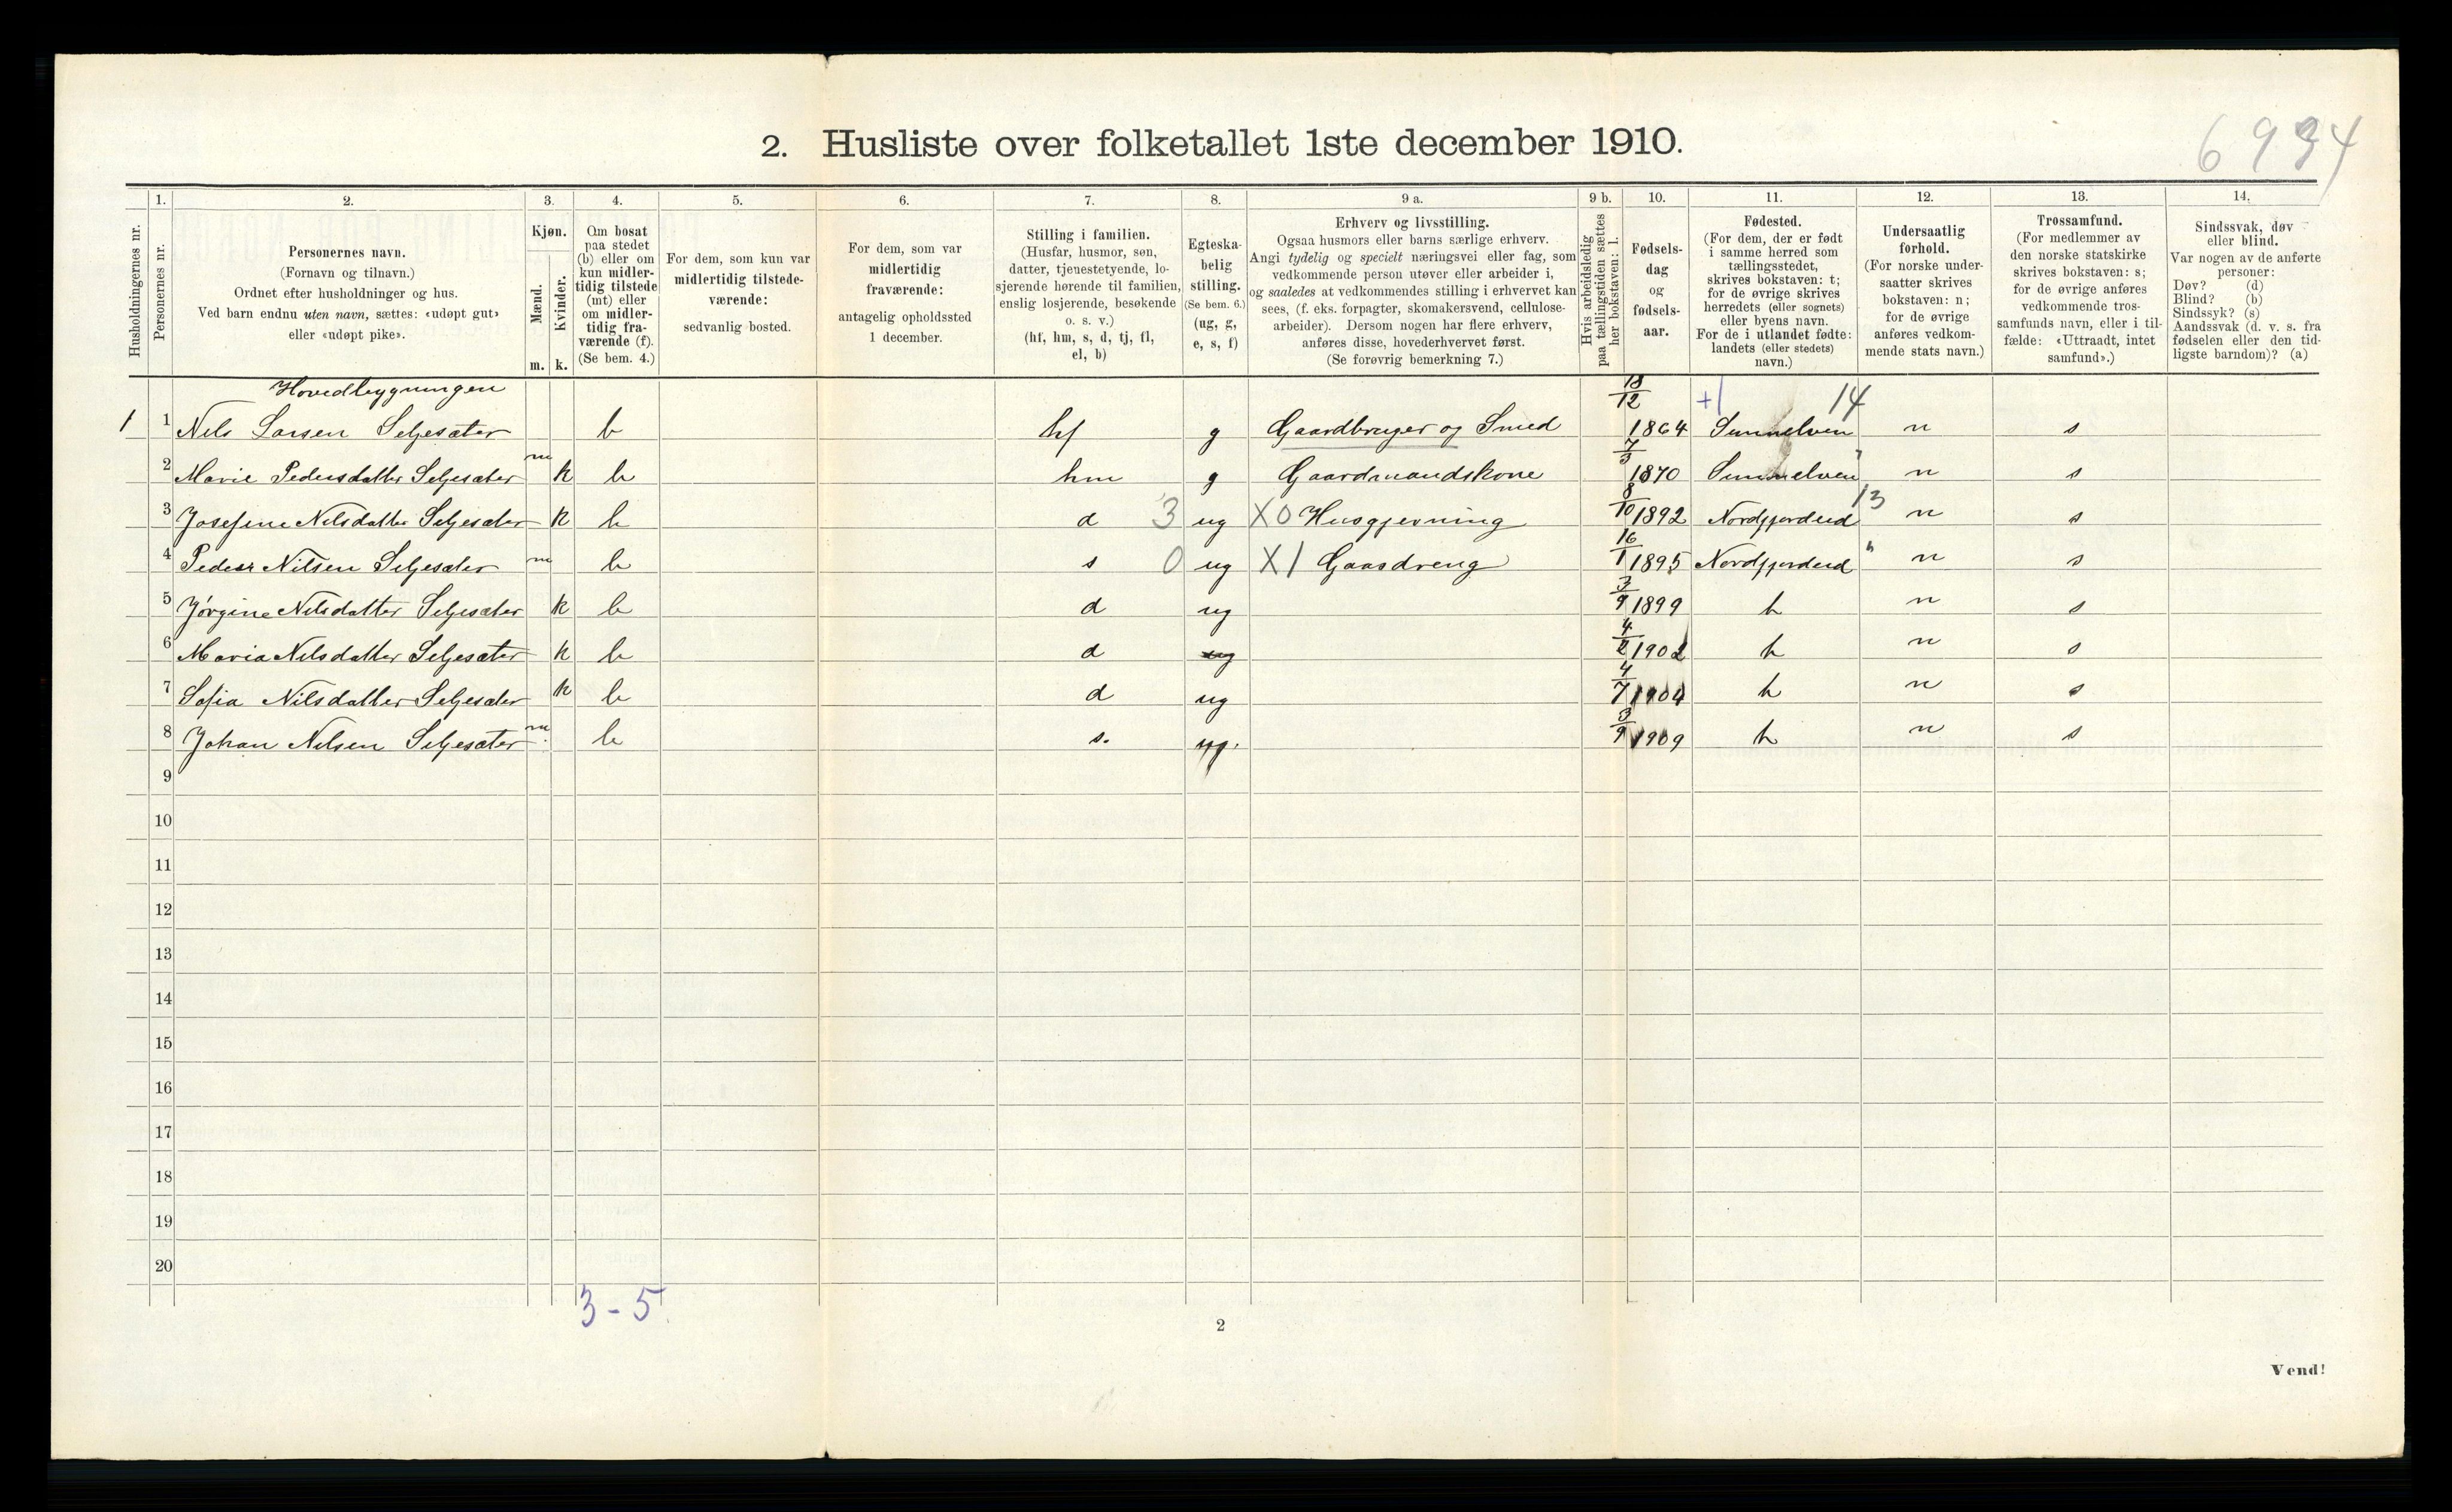 6934
2. Husliste over folketallet 1ste december 1910.
Husholdningernes nr.
1.
Personernes nr.
2.
Personernes navn.
(Fornavn og tilnavn.)
Ordnet efter husholdninger og hus.
Ved barn endnu uten navn, sættes: «udøpt gut»
eller «udøpt pike».
3.
Kjøn.
Mænd.
Kvinder.
m. k.
4.
Om bosat
paa stedet
(b) eller om
kun midler-
tidig tilstede
(mt) eller
om midler-
tidig fra-
værende (f).
(Se bem. 4.)
5.
For dem, som kun var
midlertidig tilstede-
værende:
sedvanlig bosted.
6.
For dem, som var
midlertidig
fraværende:
antagelig opholdssted
1 december.
7.
Stilling i familien.
(Husfar, husmor, søn,
datter, tjenestetyende, lo-
sjerende hørende til familien,
enslig losjerende, besøkende
o. s. v.)
(hf, hm, s, d, tj, fl,
el, b)
8.
Egteska-
belig
stilling.
(Se bem. 6.)
(ug, g,
e, s, f)
9 a.
Erhverv og livsstilling.
Ogsaa husmors eller barns særlige erhverv.
Angi tydelig og specielt næringsvei eller fag, som
vedkommende person utøver eller arbeider i,
og saaledes at vedkommendes stilling i erhvervet kan
sees, (f. eks. forpagter, skomakersvend, cellulose-
arbeider). Dersom nogen har flere erhverv,
anføres disse, hovederhvervet først.
(Se forøvrig bemerkning 7.)
9 b.
Hvis arbeidsledig
paa tællingstiden sættes
her bokstaven: l.
10.
Fødsels-
dag
og
fødsels-
aar.
11.
Fødested.
(For dem, der er født
i samme herred som
tællingsstedet,
skrives bokstaven: t;
for de øvrige skrives
herredets (eller sognets)
eller byens navn.
For de i utlandet fødte:
landets (eller stedets)
navn.)
12.
Undersaatlig
forhold.
(For norske under-
saatter skrives
bokstaven: n;
for de øvrige
anføres vedkom-
mende stats navn.)
13.
Trossamfund.
(For medlemmer av
den norske statskirke
skrives bokstaven: s;
for de øvrige anføres
vedkommende tros-
samfunds navn, eller i til-
fælde: «Uttraadt, intet
samfund».)
14.
Sindssvak, døv
eller blind.
Var nogen av de anførte
personer:
Døv? (d)
Blind? (b)
Sindssyk? (s)
Aandssvak (d. v. s. fra
fødselen eller den tid-
ligste barndom)? (a)
Hovedbygningen
1 1 Nils Larsen Seljesæter m b hf g Gaardbruger og Smed 13/12 1864 +1 Sunnelven 14 n s
2 Marie Pedersdatter Seljesæter k b hm g Gaardmandskone 7/3 1870 Sunnelven " n s
3 Josefine Nilsdatter Seljesæter k b d 3 ug X0 Husgjerning 8/10 1892 Nordfjordeid 13 n s
4 Peder Nilsen Seljesæter m b s 0 ug X1 Gaardreng 16/1 1895 Nordfjordeid " n s
5 Jørgine Nilsdatter Seljesæter k b d ug 3/9 1899 h n s
6 Maria Nilsdatter Seljesæter k b d ug 4/2 1902 h n s
7 Sofia Nilsdatter Seljesæter k b d ug 4/7 1904 h n s
8 Johan Nilsen Seljesæter m. b s. ug. 3/9 1909 h n s
9
10
11
12
13
14
15
16
17
18
19
20
3-5
2
Vend!